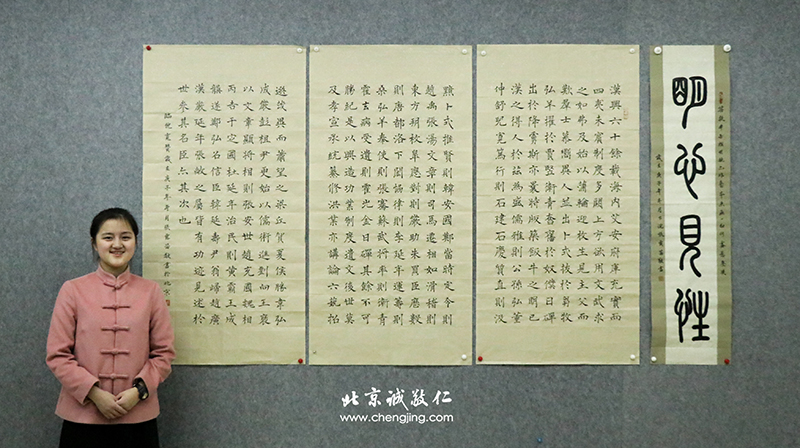 明心見性
漢興六十餘載海内艾安府庫充實而
四夷未賓制度多闕上方欲用文武求
之如弗及始以蒲輪迎枚生見主父而
歎羣士慕嚮異人並出卜式拔於芻牧
弘羊擢於賈豎衛青奮於奴僕日磾
出於降虜斯亦曩時版築飯牛之朋已
漢之得人於茲為盛儒雅則公孫弘董
仲舒兒寬篤行則石建石慶質直則汲
黯卜式推賢則韓安國鄭當時定令則
趙禹張湯文章則司馬遷相如滑稽則
東方朔枚皋應對則嚴助朱買臣歷數
則唐都洛下閎協律則李延年運籌則
桑弘羊奉使則張騫蘇武將率則衛青
霍去病受遺則霍光金日磾其餘不可
勝紀是以興造功業制度遺文後世莫
及孝宣承統纂修洪業亦講論六藝招
選茂異而蕭望之梁丘賀夏侯勝韋弘
成嚴彭祖尹更始以儒術進劉向王褒
以文章顯將相則張安世趙充國魏相
丙吉于定國杜延年治民則黃霸王成
龔遂鄭弘召信臣韓延壽尹翁歸趙廣
漢嚴延年張敞之屬皆有功迹見述於
世參其名臣亦其次也
臨倪寬贊歲在庚子年
敬書於北京
北京诚敬仁
www.chengjing.com